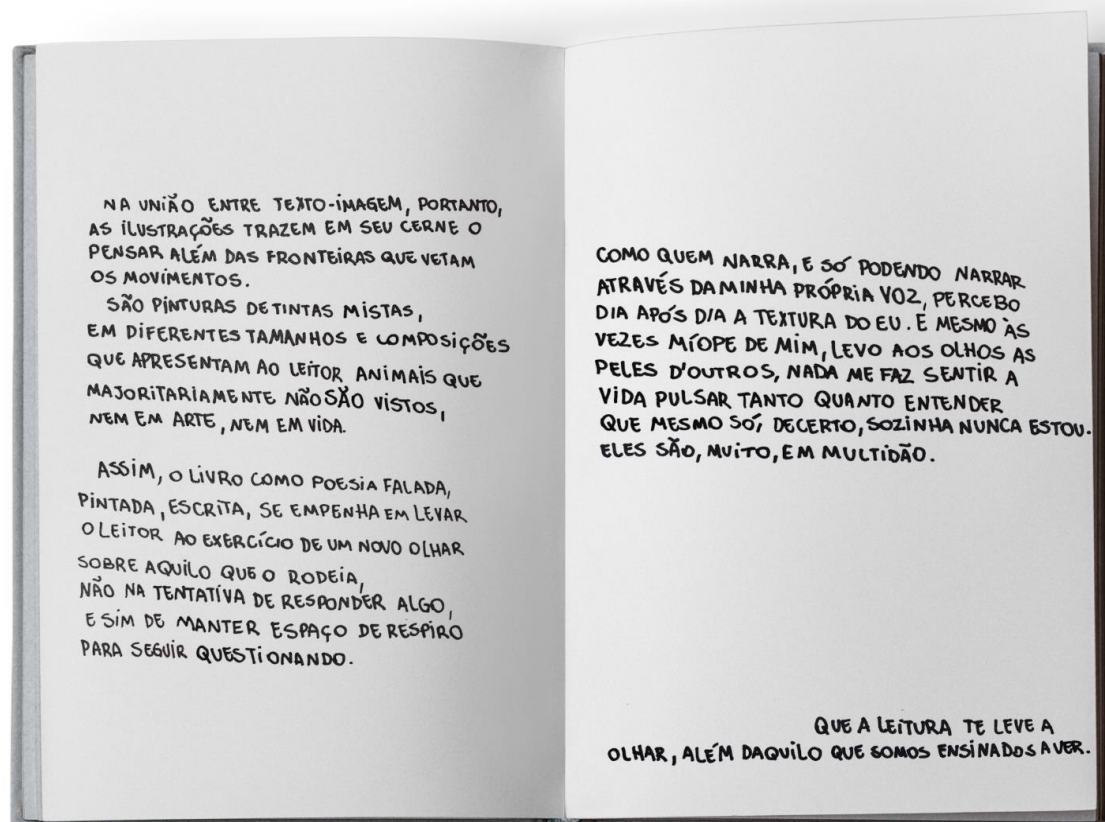 NA UNIÃO ENTRE TEXTO-IMAGEM, PORTANTO,
AS ILUSTRAÇÕES TRAZEM EM SEU CERNE O
PENSAR ALÉM DAS FRONTEIRAS QUE VETAM
OS MOVIMENTOS.
SÃO PINTURAS DE TINTAS MISTAS,
EM DIFERENTES TAMANHOS E COMPOSIÇÕES
QUE APRESENTAM AO LEITOR ANIMAIS QUE
MAJORITARIAMENTE NÃO SÃO VISTOS,
NEM EM ARTE, NEM EM VIDA.
ASSIM, O LIVRO COMO POESIA FALADA,
PINTADA, ESCRITA, SE EMPENHA EM LEVAR
O LEITOR AO EXERCÍCIO DE UM NOVO OLHAR
SOBRE AQUILO QUE O RODEIA,
NÃO NA TENTATIVA DE RESPONDER ALGO,
E SIM DE MANTER ESPAÇO DE RESPIRO
PARA SEGUIR QUESTIONANDO.
COMO QUEM NARRA, E SÓ PODENDO NARRAR
ATRAVÉS DA MINHA PRÓPRIA VOZ, PERCEBO
DIA APÓS DIA A TEXTURA DO EU. E MESMO ÀS
VEZES MÍOPE DE MIM, LEVO AOS OLHOS AS
PELES D'OUTROS, NADA ME FAZ SENTIR A
VIDA PULSAR TANTO QUANTO ENTENDER
QUE MESMO SÓ, DECERTO, SOZINHA NUNCA ESTOU.
ELES SÃO, MUITO, EM MULTIDÃO.
QUE A LEITURA TE LEVE A
OLHAR, ALÉM DAQUILO QUE SOMOS ENSINADOS A VER.